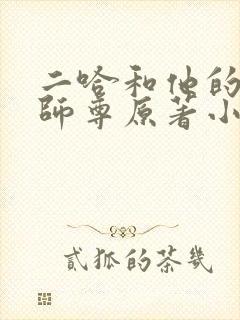 二哈和他的
師尊原著小
貳狐的茶幾